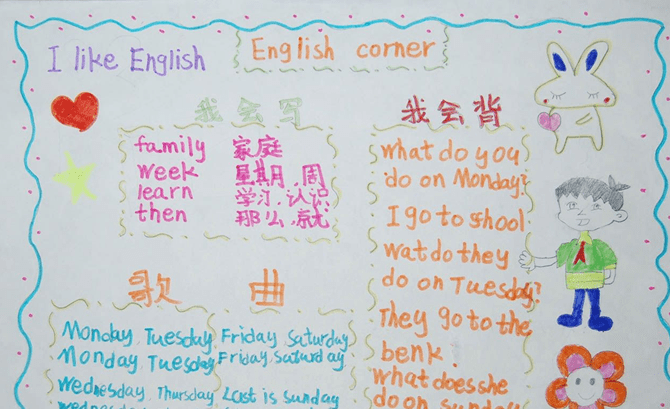 I like English
English corner
我会写
family 家庭
week 星期,周
learn 学习,认识
then 那么,就
我会背
what do you
do on Monday?
I go to shool
wat do they
do on Tuesday?
They go to the
benk.
what does she
do on sunday
歌 曲
Monday, Tuesday, Friday, Saturday
Monday, Tuesday, Friday, Saturday
wednesday, Thursday, Last is sunday